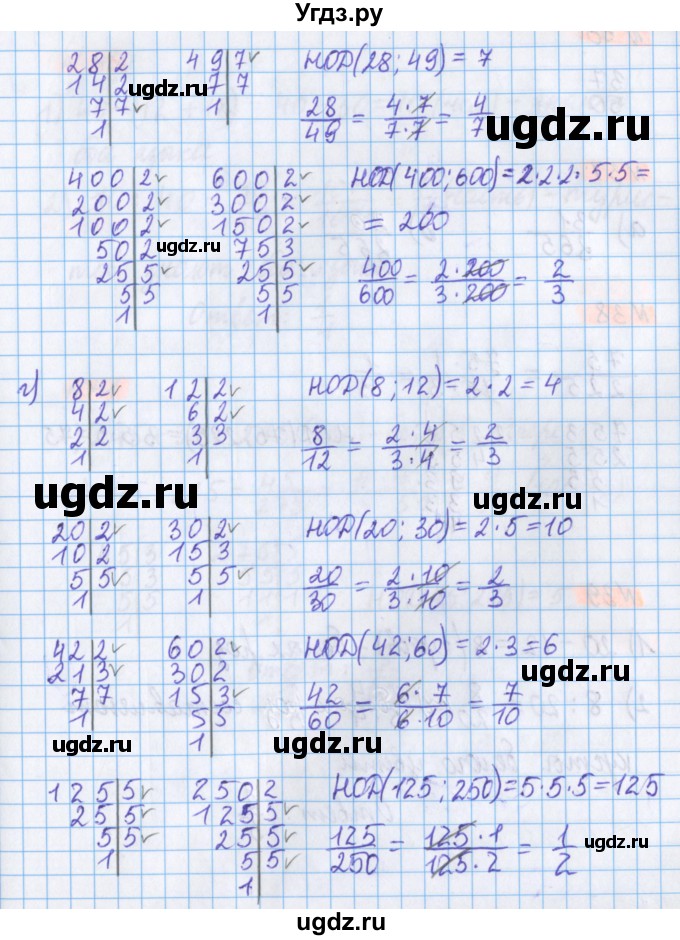 Угдз.ру
28|2 49|7✓ НОД(28; 49) = 7
14|2 7|7
7|7✓ 1|
1|
28/49 = 4·7/7·7 = 4/7
ugdz.ru
ugdz.ru
400|2✓ 600|2✓ НОД(400; 600) = 2·2·2·5·5 =
200|2✓ 300|2✓ = 200
100|2✓ 150|2✓
50|2 75|3
25|5✓ 25|5✓
5|5 5|5
1| 1|
400/600 = 2·200/3·200 = 2/3
ugdz.ru
ugdz.ru
г) 8|2✓ 12|2✓ НОД(8; 12) = 2·2 = 4
4|2✓ 6|2✓
2|2 3|3
1| 1|
8/12 = 2·4/3·4 = 2/3
ugdz.ru
ugdz.ru
20|2✓ 30|2✓ НОД(20; 30) = 2·5 = 10
10|2 15|3
5|5✓ 5|5✓
1| 1|
20/30 = 2·10/3·10 = 2/3
ugdz.ru
ugdz.ru
42|2✓ 60|2✓ НОД(42; 60) = 2·3 = 6
21|3✓ 30|2
7|7 15|3✓
1| 5|5
1|
42/60 = 6·7/6·10 = 7/10
ugdz.ru
ugdz.ru
125|5✓ 250|2 НОД(125; 250) = 5·5·5 = 125
25|5✓ 125|5✓
5|5✓ 25|5✓
1| 5|5✓
1|
125/250 = 125·1/125·2 = 1/2
ugdz.ru
ugdz.ru
ugdz.ru